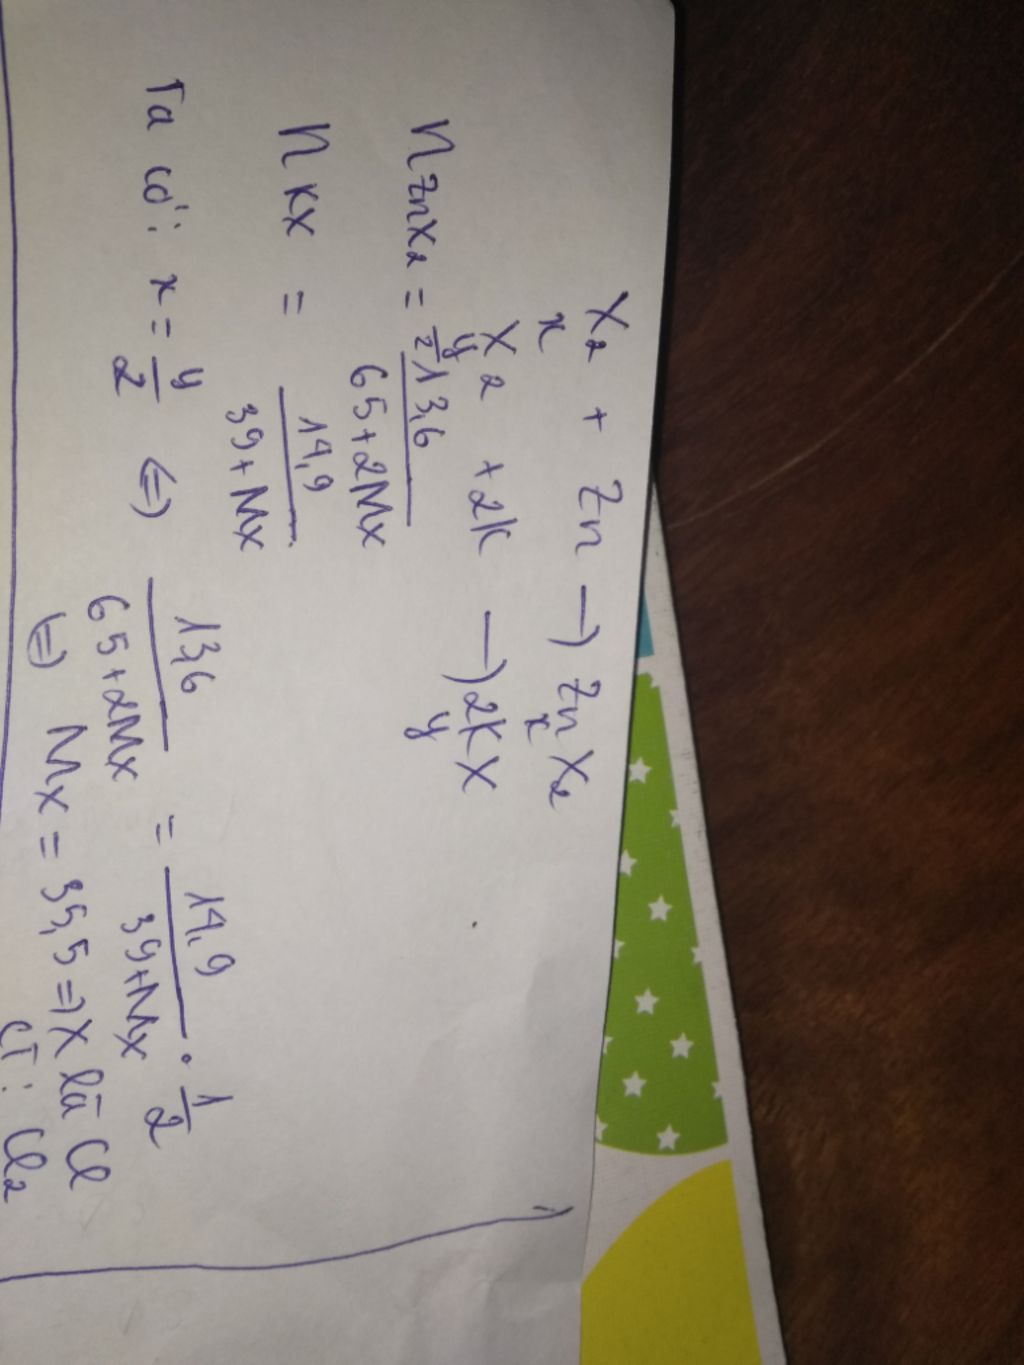 X₂ + Zn → ZnX₂
x x
X₂ + 2K → 2KX
y/2 y
nZnX₂ = 13,6 / (65+2Mx)
nKX = 14,9 / (39+Mx)
Ta có: x = y/2 ⇔ 13,6 / (65+2Mx) = 14,9 / (39+Mx) . 1/2
⇔ Mx = 35,5 ⇒ X là Cl
CT: Cl₂